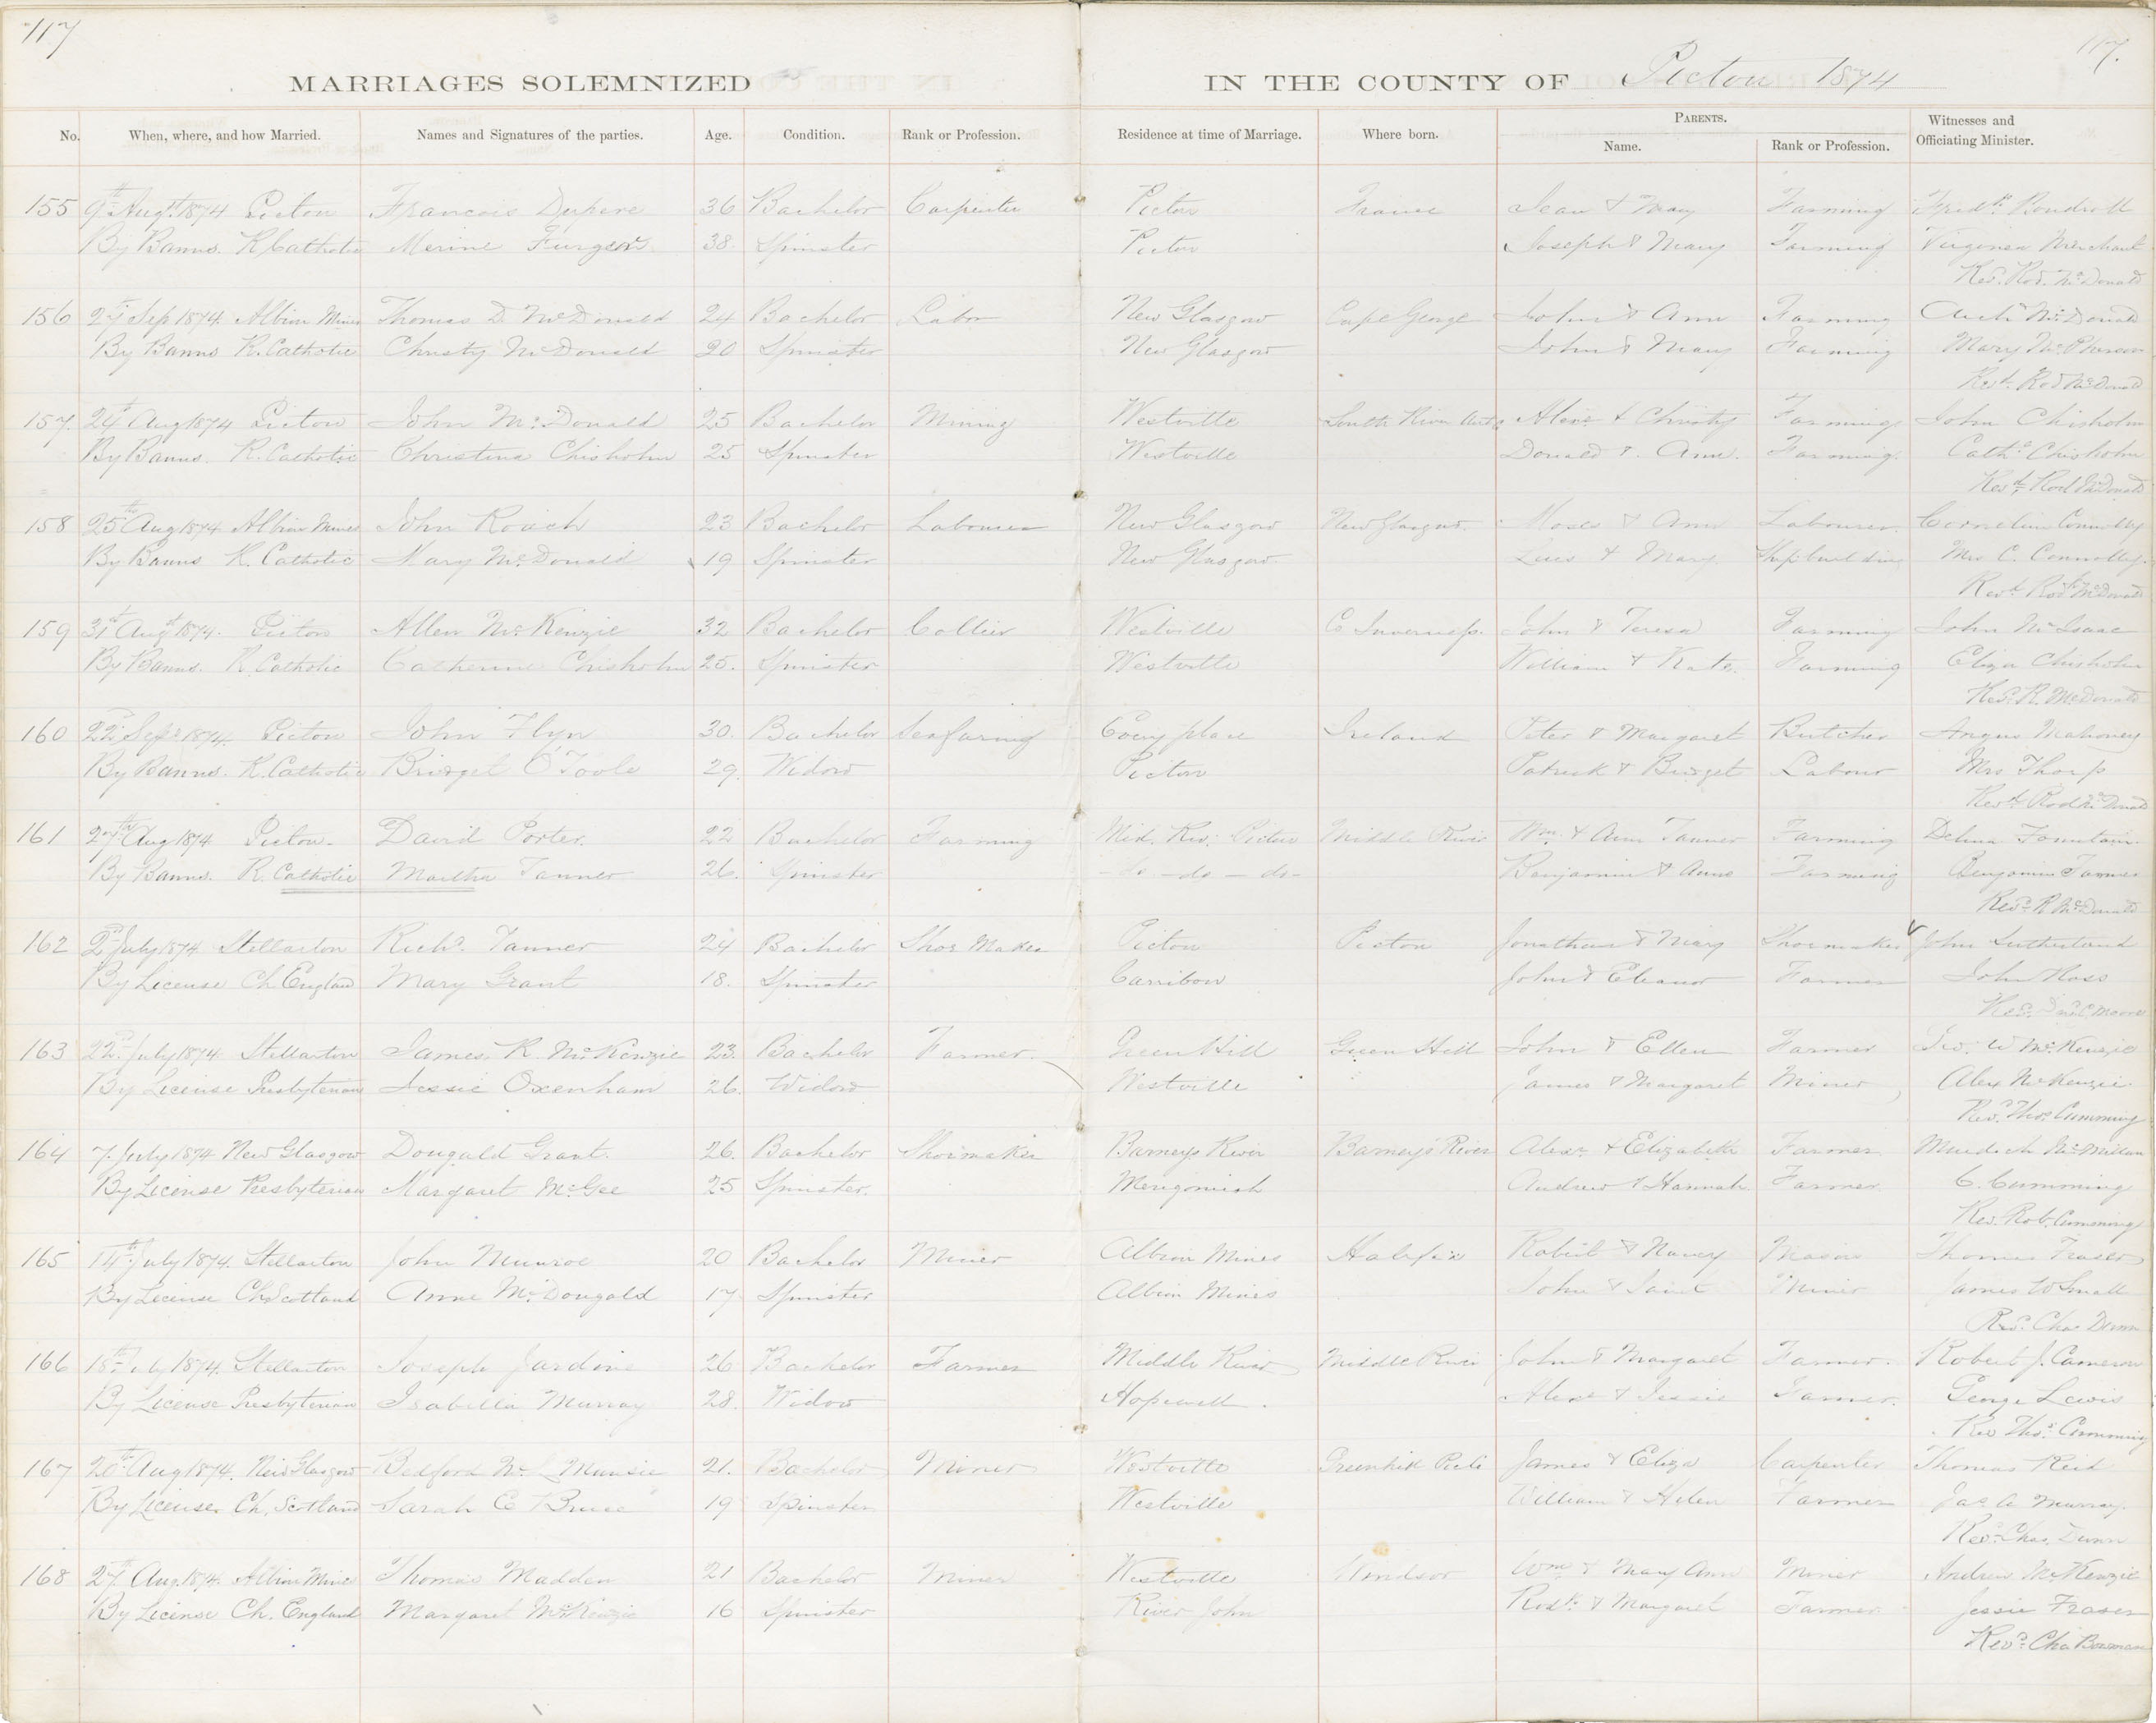 117
117.
MARRIAGES SOLEMNIZED IN THE COUNTY OF Pictou 1874
No. When, where, and how Married. Names and Signatures of the parties. Age. Condition. Rank or Profession. Residence at time of Marriage. Where born. PARENTS. Name. Rank or Profession. Witnesses and Officiating Minister.
155 9th Augt. 1874 Pictou Francois Dupere 36 Bachelor Carpenter Pictou France Jean & Mary Farming Fredk.
By Banns. R. Catholic Merine 38. Spinster Pictou Joseph & Mary Farming Virginea Merchant
Rev. Rod. McDonald
156 Sep 1874. Albion Mines Thomas D. McDonald 24 Bachelor Labor New Glasgow Cape George John & Ann Farming Archd. McDonald
By Banns R. Catholic Christy McDonald 20 Spinster New Glasgow John & Mary Farming Mary McPherson
Revd. Rod McDonald
157. 24th Aug 1874 Pictou John McDonald 25 Bachelor Mining Westville South River Alexr. & Christy Farming John Chisholm
By Banns. R. Catholic Christina Chisholm 25 Spinster Westville Donald &. Ann. Farming. Cathe. Chisholm
Revd. Rod McDonald
158 25th Aug 1874 Albion Mines John Roach 23 Bachelor Labourer New Glasgow New Glasgow. Moses & Ann Labourer. Cornelius Connolly
By Banns R. Catholic Mary McDonald 19 Spinster New Glasgow. & Mary Shipbuilding Mrs C. Connolly.
Revd. Rod McDonald
159 31st Augt 1874. Pictou Allen McKenzie 32 Bachelor Collier Westville Co Inverness. John & Teresa Farming John McIsaac
By Banns. R. Catholic Catherine Chisholm 25. Spinster Westville William & Kate. Farming Eliza Chisholm
Revd. R. McDonald
160 22d Sept 1874. Pictou John Flyn 30. Bachelor Seafaring place Ireland Peter & Margaret Butcher Angus Mahoney
By Banns. R. Catholic Bridget O'Toole 29. Widow Pictou Patrick & Bridget Labour Mrs Thorp
Revd. Rod McDonald
161 27th Aug 1874 Pictou. David Porter. 22 Bachelor Farming Mid. Riv. Pictou Middle River Wm. & Ann Tanner Farming Fountain.
By Banns. R. Catholic Martha Tanner 26. Spinster - do - do - do - Benjamin & Anne Farming Benjamin Tanner
Revd. R McDonald
162 2d July 1874 Stellarton Richd. Tanner 24 Bachelor Shoe Maker Pictou Pictou Jonathan & Mary Shoemaker John Sutherland
By License Ch. England Mary Grant 18. Spinster Carribou John & Eleanor Farmer John Ross
Revd. Moore
163 22d. July 1874. Stellarton James R. McKenzie 23. Bachelor Farmer. Green Hill Green Hill John & Ellen Farmer W McKenzie
By License Presbyterian Jessie Oxenham 26. Widow Westville James & Margaret Miner Alex McKenzie.
Revd. Thos. Cumming
164 7. July 1874 New Glasgow Dougald Grant. 26. Bachelor Shoemaker Barneys River Barney's River Alexr. & Elizabeth Farmer Murdoch McMillan
By License Presbyterian Margaret McGee 25 Spinster. Merigomish Andrew & Hannah. Farmer. C. Cumming
Rev. Rob. Cumming
165 14th July 1874. Stellarton John Munroe 20 Bachelor Miner Albion Mines Halifax Robert & Nancy Mason Thomas Fraser
By License Ch Scotland Anne McDougald 17 Spinster Albion Mines John & Janet Miner James W Small
Revd. Chas Dunn
166 18th July 1874. Stellarton Joseph Jardine 26 Bachelor Farmer Middle River Middle River John & Margaret Farmer. Robert J. Cameron
By License Presbyterian Isabella Murray 28. Widow Hopewell. Alexr & Jessie Farmer. George Lewis
Rev Thos. Cumming
167 20th Aug 1874. New Glasgow Bedford Mc Munsie 21. Bachelor Miner Westville Greenhill James & Eliza Carpenter Thomas Reid
By License. Ch. Scotland Sarah E Bruce 19 Spinster Westville William & Helen Farmer Jas. A Murray.
Revd. Chas. Dunn
168 27th Aug. 1874. Albion Mines Thomas Madden 21 Bachelor Miner Westville Windsor Wm & Mary Ann Miner Andrew McKenzie
By License Ch. England Margaret McKenzie 16 Spinster River John Rodk. & Margaret Farmer. Jessie Fraser
Revd. Chas Bowman